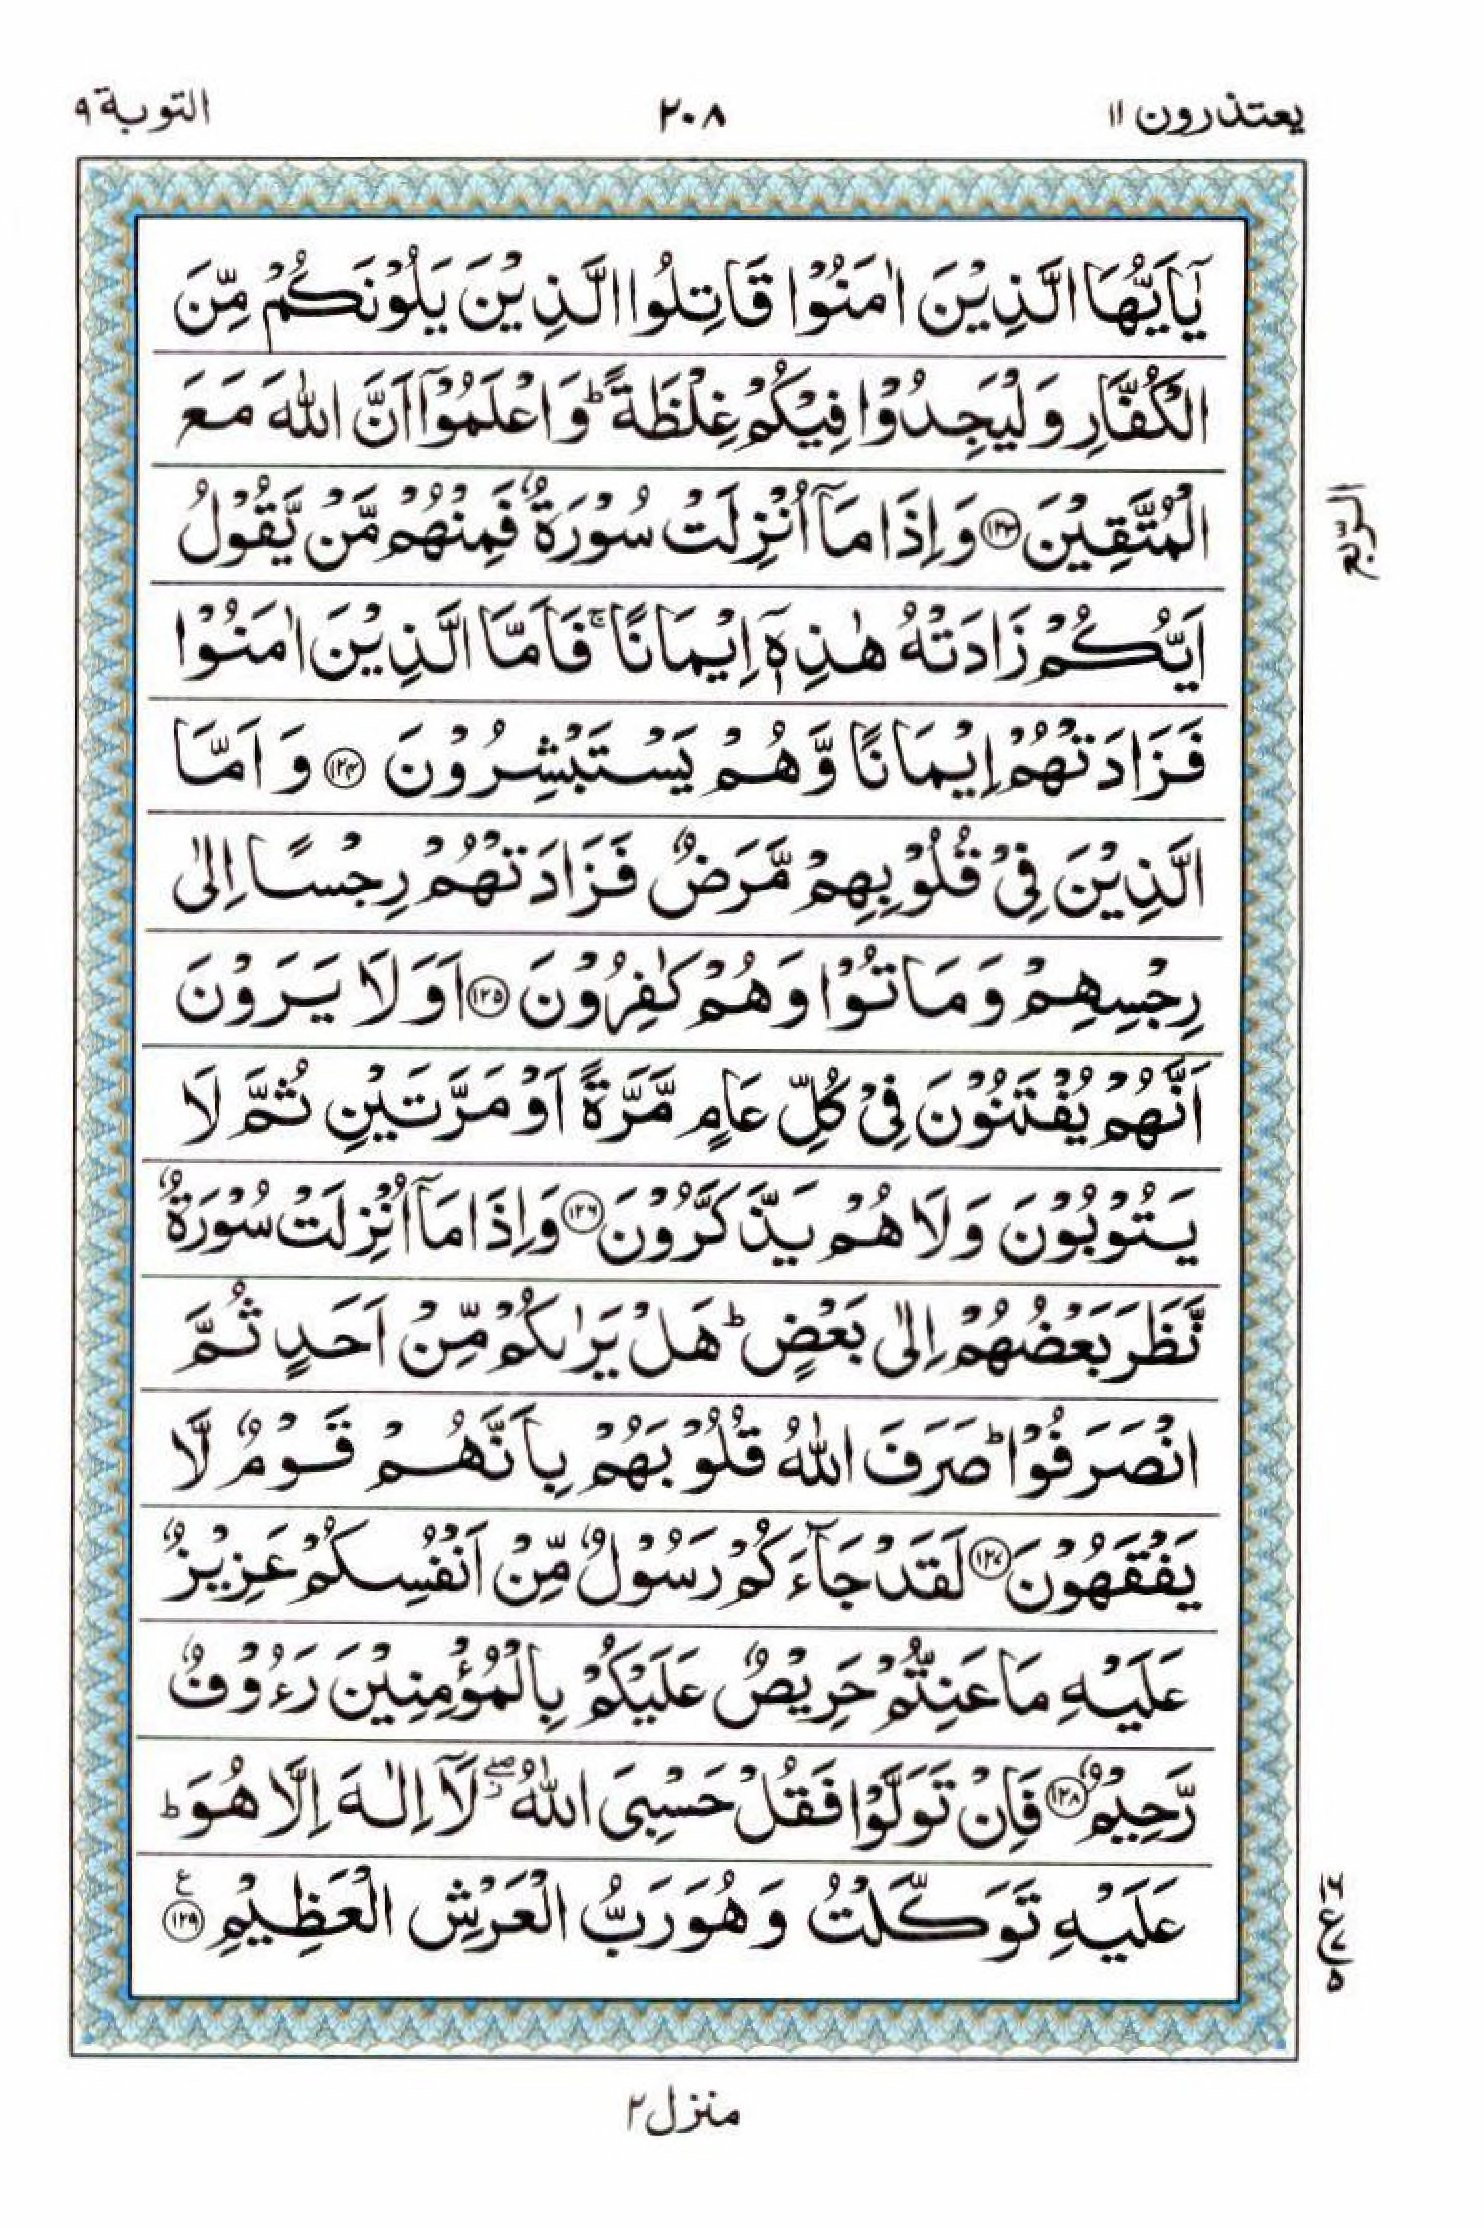 يعتذرون ١١ ٢٠٨ التوبة ٩
يٰۤاَيُّهَا الَّذِيْنَ اٰمَنُوْا قَاتِلُوا الَّذِيْنَ يَلُوْنَكُمْ مِّنَ
الْكُفَّارِ وَلْيَجِدُوْا فِيْكُمْ غِلْظَةً ؕ وَاعْلَمُوْۤا اَنَّ اللّٰهَ مَعَ
الْمُتَّقِيْنَ ﴿۱۲۳﴾ وَاِذَا مَاۤ اُنْزِلَتْ سُوْرَةٌ فَمِنْهُمْ مَّنْ يَّقُوْلُ
الربع
اَيُّكُمْ زَادَتْهُ هٰذِهٖۤ اِيْمَانًا ۚ فَاَمَّا الَّذِيْنَ اٰمَنُوْا
فَزَادَتْهُمْ اِيْمَانًا وَّهُمْ يَسْتَبْشِرُوْنَ ﴿۱۲۴﴾ وَاَمَّا
الَّذِيْنَ فِىْ قُلُوْبِهِمْ مَّرَضٌ فَزَادَتْهُمْ رِجْسًا اِلٰى
رِجْسِهِمْ وَمَاتُوْا وَهُمْ كٰفِرُوْنَ ﴿۱۲۵﴾ اَوَلَا يَرَوْنَ
اَنَّهُمْ يُفْتَنُوْنَ فِىْ كُلِّ عَامٍ مَّرَّةً اَوْ مَرَّتَيْنِ ثُمَّ لَا
يَتُوْبُوْنَ وَلَا هُمْ يَذَّكَّرُوْنَ ﴿۱۲۶﴾ وَاِذَا مَاۤ اُنْزِلَتْ سُوْرَةٌ
نَّظَرَ بَعْضُهُمْ اِلٰى بَعْضٍ ؕ هَلْ يَرٰىكُمْ مِّنْ اَحَدٍ ثُمَّ
انْصَرَفُوْا ؕ صَرَفَ اللّٰهُ قُلُوْبَهُمْ بِاَنَّهُمْ قَوْمٌ لَّا
يَفْقَهُوْنَ ﴿۱۲۷﴾ لَقَدْ جَآءَكُمْ رَسُوْلٌ مِّنْ اَنْفُسِكُمْ عَزِيْزٌ
عَلَيْهِ مَا عَنِتُّمْ حَرِيْصٌ عَلَيْكُمْ بِالْمُؤْمِنِيْنَ رَءُوْفٌ
رَّحِيْمٌ ﴿۱۲۸﴾ فَاِنْ تَوَلَّوْا فَقُلْ حَسْبِىَ اللّٰهُ ۖ لَاۤ اِلٰهَ اِلَّا هُوَ ؕ
عَلَيْهِ تَوَكَّلْتُ وَهُوَ رَبُّ الْعَرْشِ الْعَظِيْمِ ﴿۱۲۹﴾ ع
منزل ٢